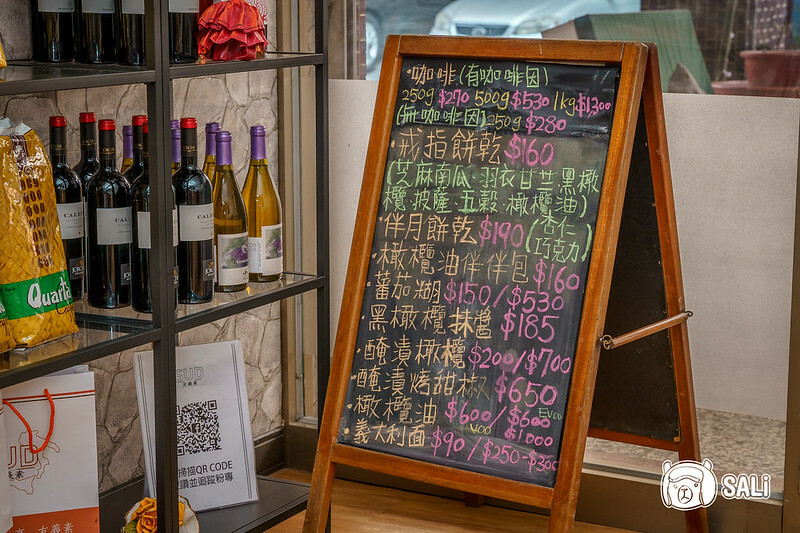 ·咖啡(有咖啡因)
250g $270 500g $530 1kg $1,300
(無咖啡因) 250g $280
·戒指餅乾 $160
(芝麻南瓜·羽衣甘藍·黑橄
欖·披薩·五穀·橄欖油)
·伴月餅乾 $190 (杏仁
巧克力)
·橄欖油伴伴包 $160
·蕃茄糊 $150/$530
·黑橄欖抹醬 $185
·醃漬橄欖 $200/$700
·醃漬烤甜椒 $650
·橄欖油 $600/$600 EVOO
$1000
義大利面 $90/$250-$300
CALI
Quarta
SUD
義素
掃描QR CODE
讚並追蹤粉專
SUD
友義素
SALi